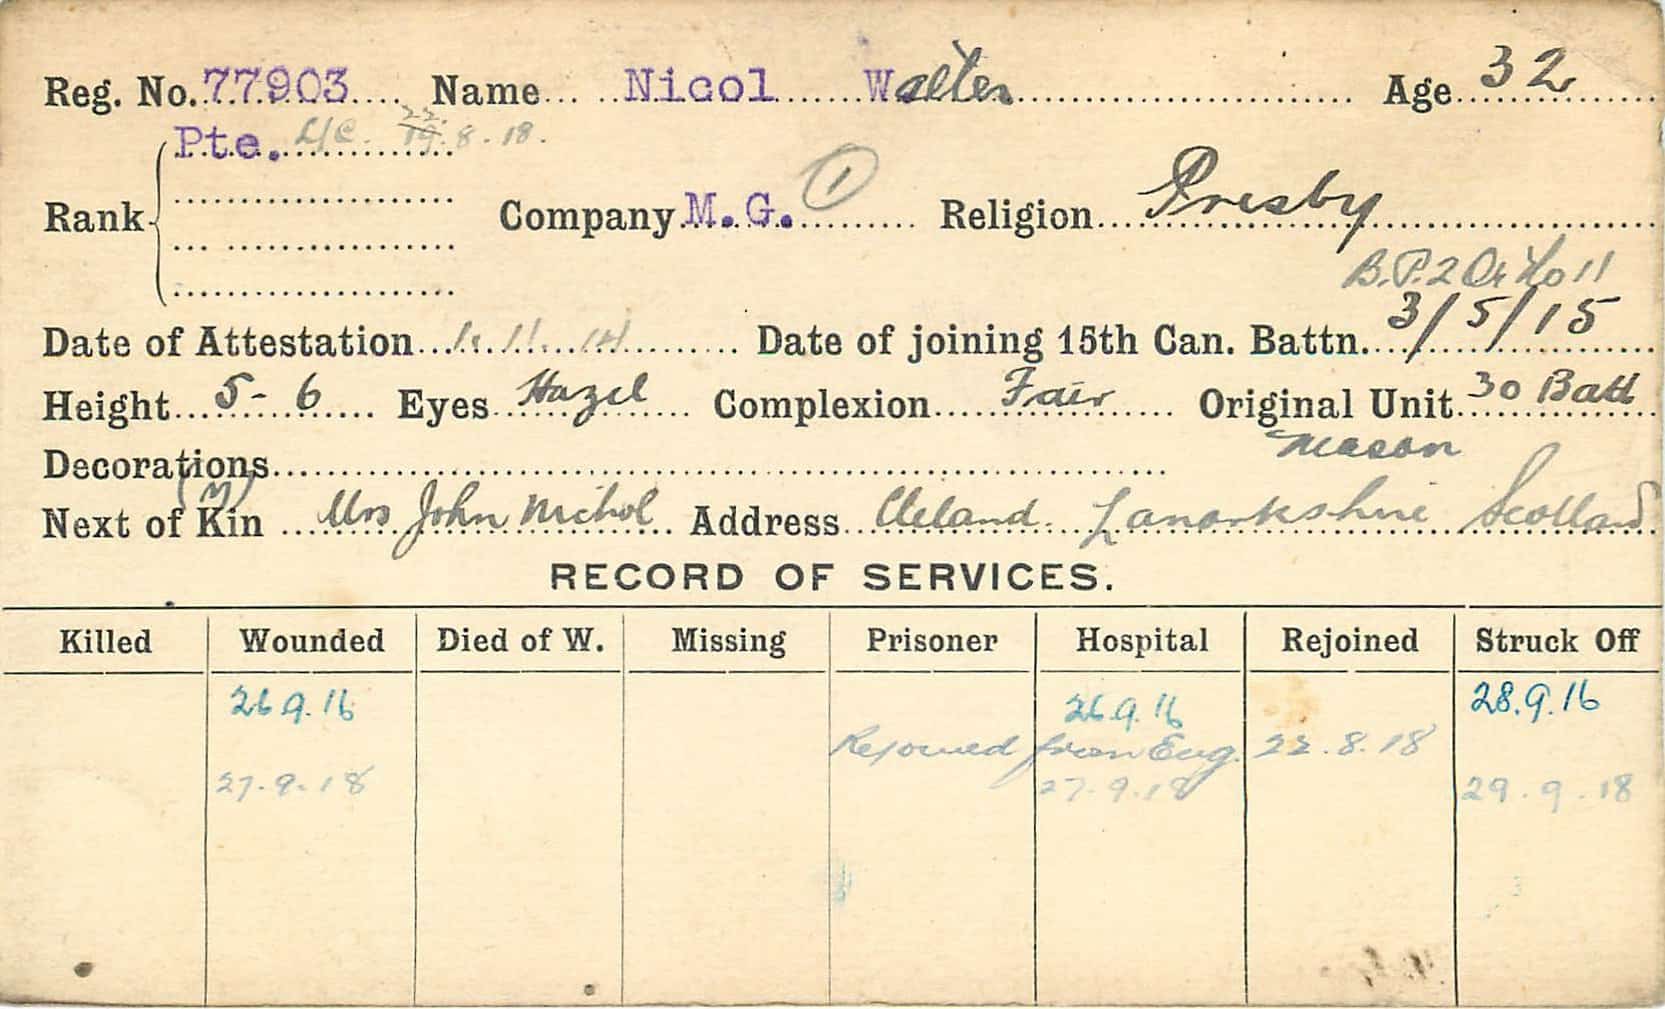 Reg. No. 77903 Name Nicol Walter Age 32
Pte. L/C. 19. 22. 8. 18.
Rank Company M.G. 1 Religion Presby
B.P.2 Or No 11
Date of Attestation 1. 11. 14 Date of joining 15th Can. Battn. 3/5/15
Height 5-6 Eyes Hazel Complexion Fair Original Unit 30 Batt
Mason
Decorations
(M)
Next of Kin Mrs John Nichol Address Cleland. Lanarkshire Scotland
RECORD OF SERVICES.
Killed Wounded Died of W. Missing Prisoner Hospital Rejoined Struck Off
26.9.16 26.9.16 28.9.16
Rejoined from Eng. 22.8.18
27.9.18 27.9.18 29.9.18